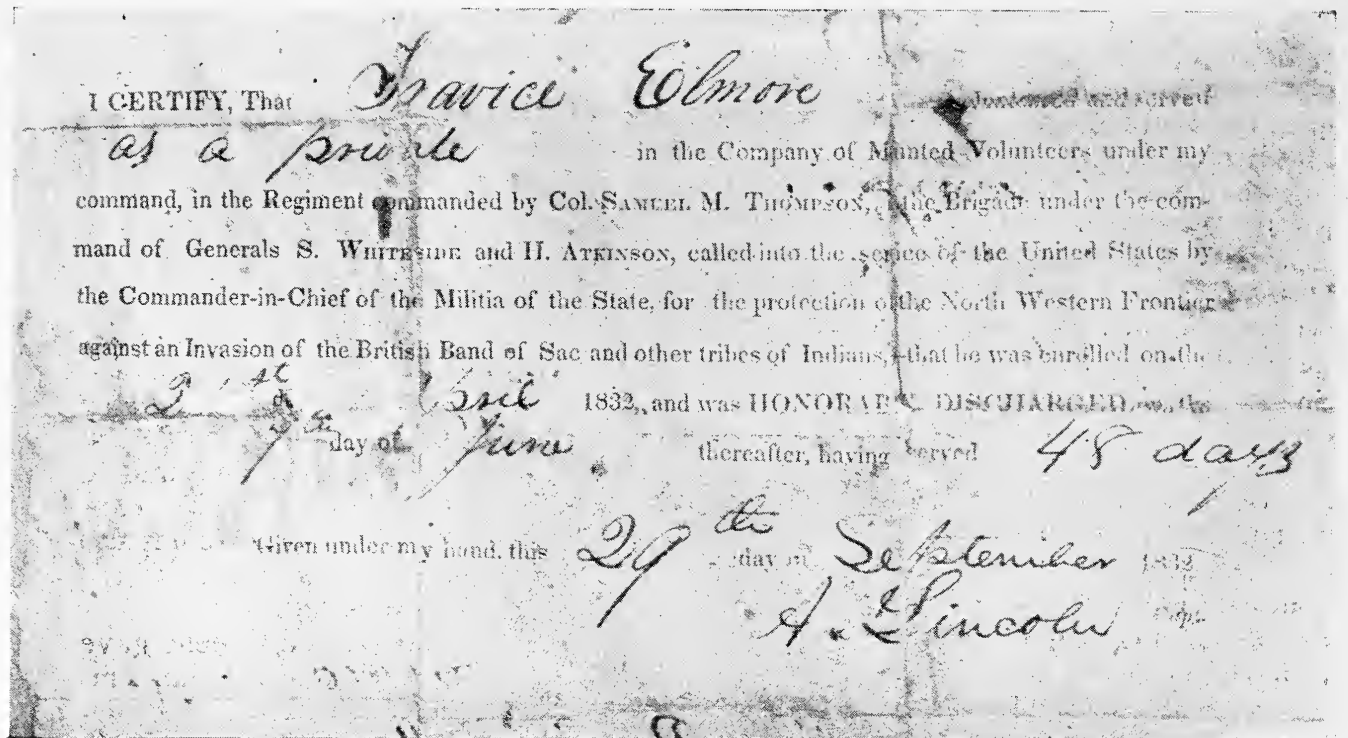 I CERTIFY, That Travice Elmore Volunteered and served
as a private in the Company of Mounted Volunteers under my
command, in the Regiment commanded by Col. SAMUEL M. THOMPSON, the Brigade under the com-
mand of Generals S. WHITESIDE and H. ATKINSON, called into the service of the United States by
the Commander-in-Chief of the Militia of the State, for the protection of the North Western Frontier
against an Invasion of the British Band of Sac and other tribes of Indians,—that he was enrolled on the
21st April 1832, and was HONORABLY DISCHARGED on the
7th day of June thereafter, having served 48 days
Given under my hand, this 29th day of September 1832
A. Lincoln Capt.